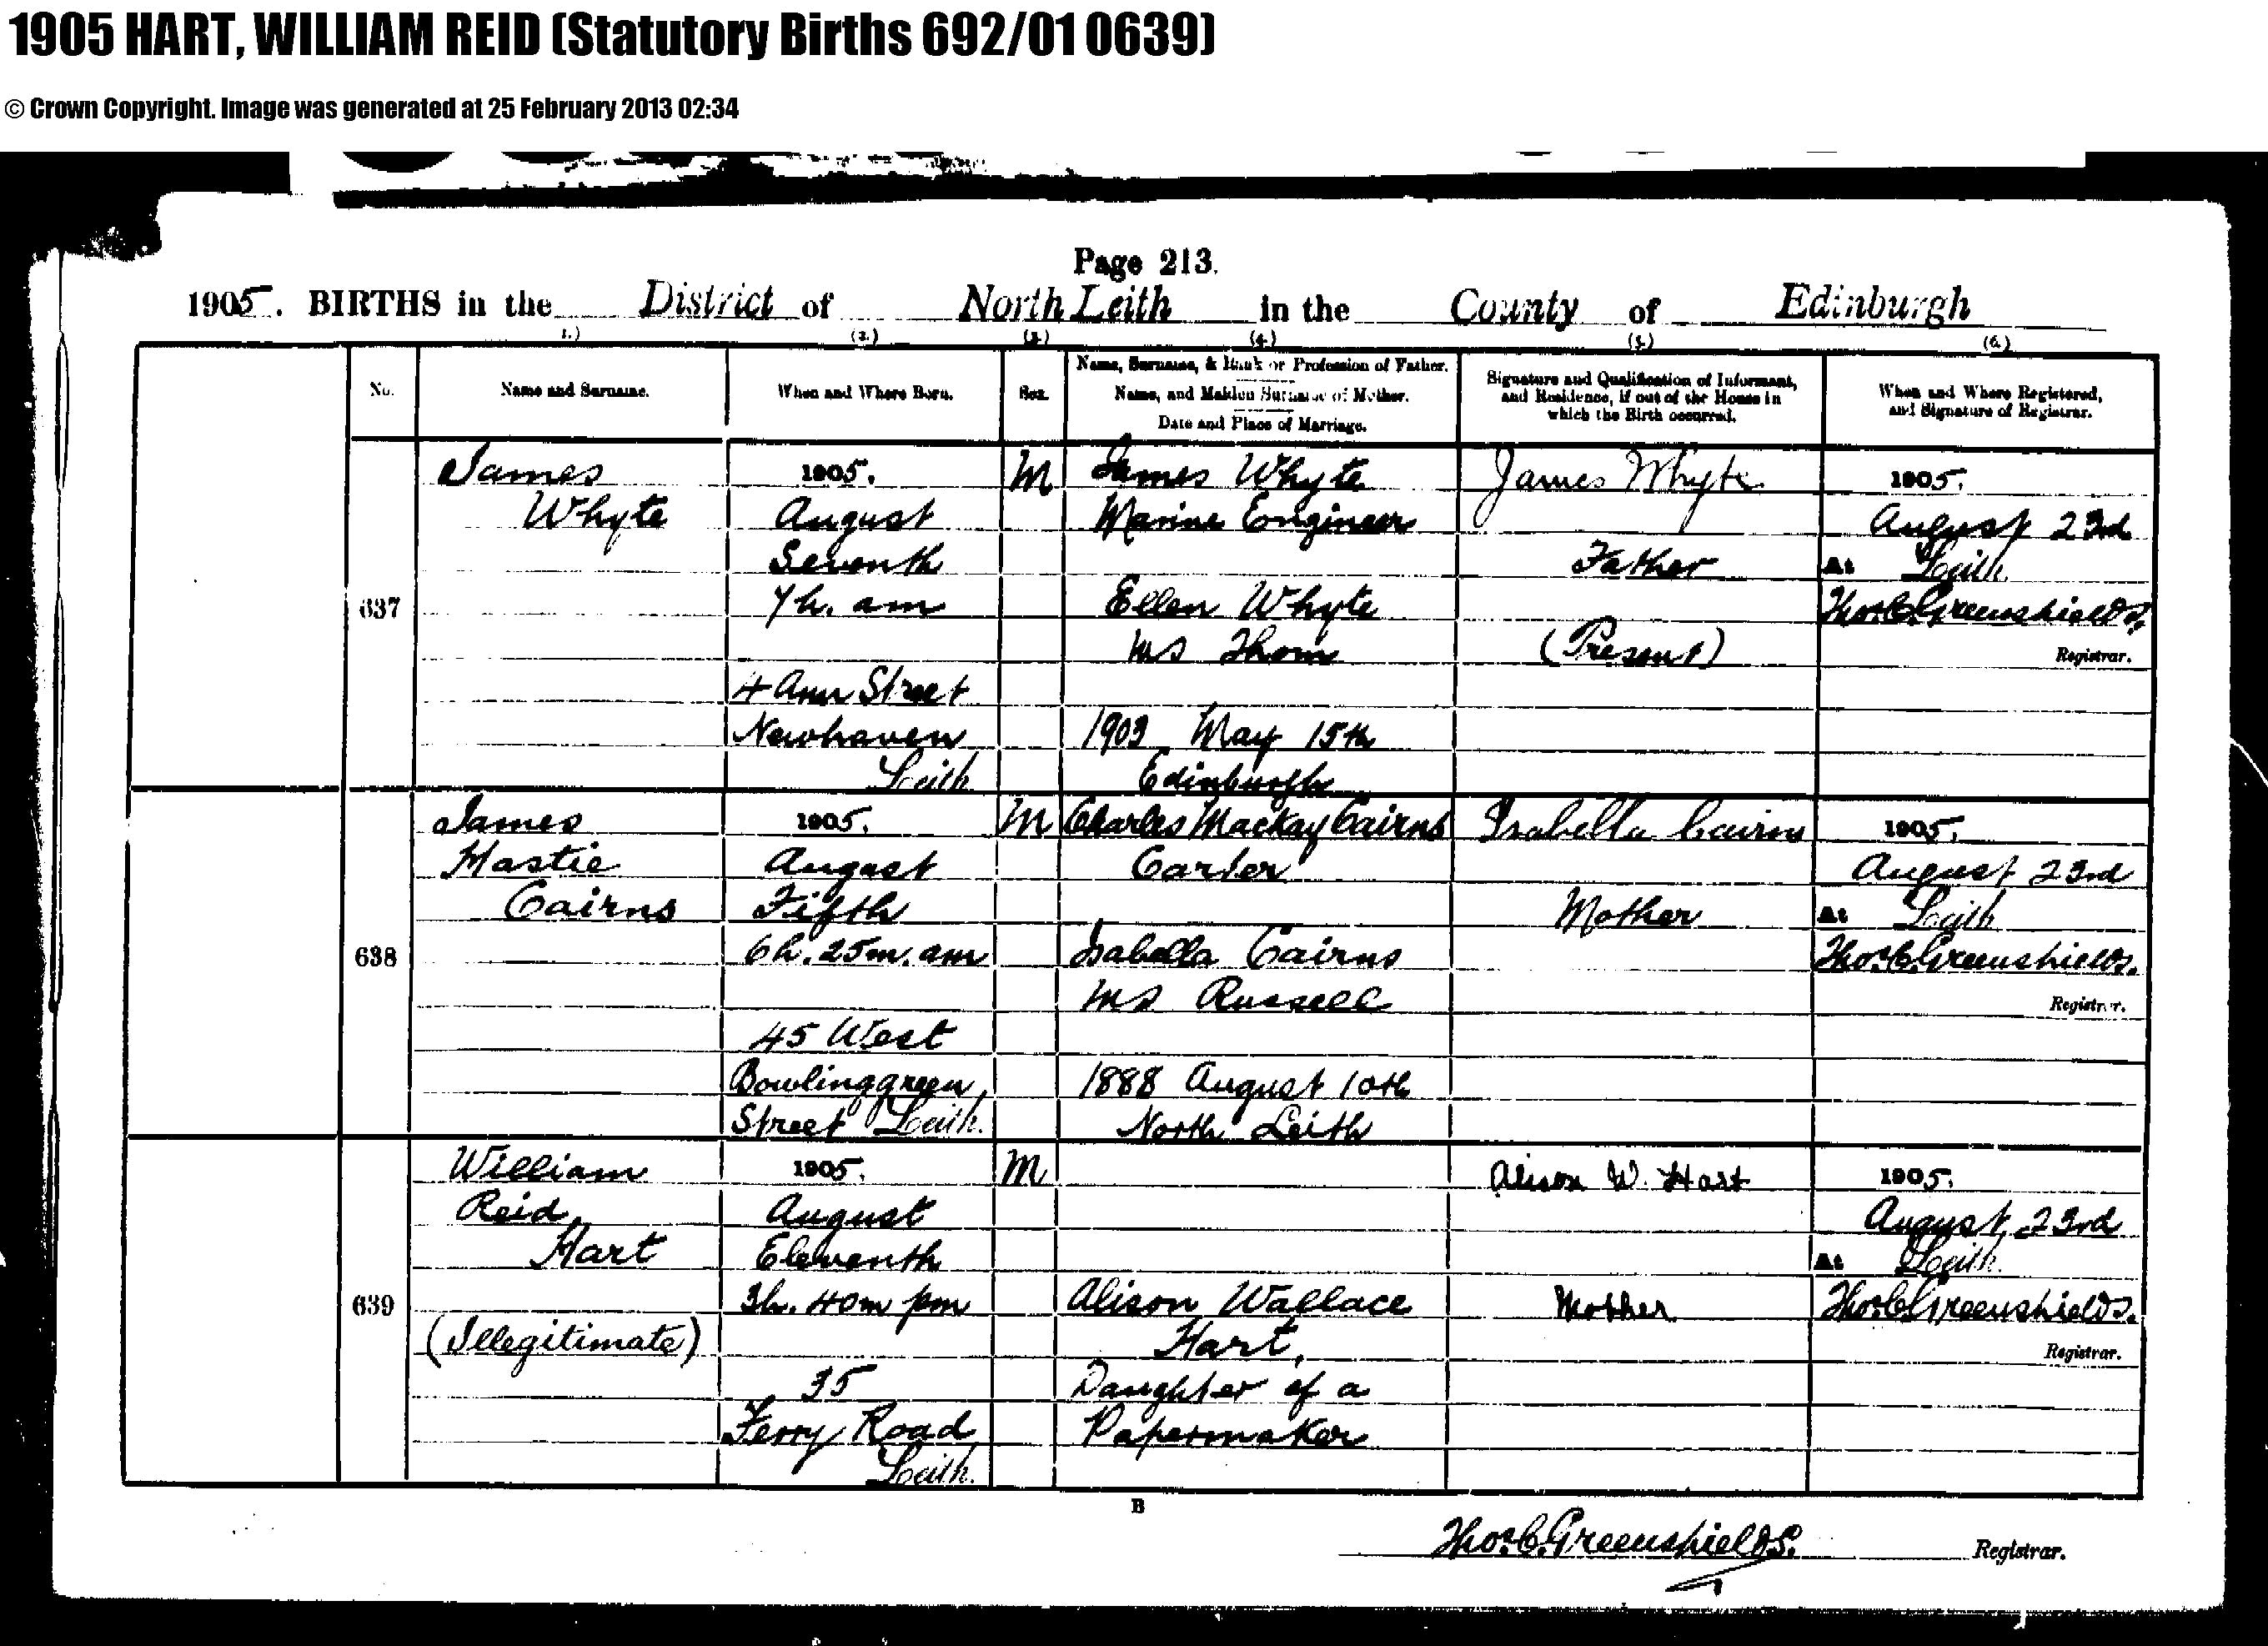 1905 HART, WILLIAM REID (Statutory Births 692/01 0639)
© Crown Copyright. Image was generated at 25 February 2013 02:34
Page 213.
1905. BIRTHS in the District of North Leith in the County of Edinburgh
(1.) (2.) (3.) (4.) (5.) (6.)
No.
Name and Surname.
When and Where Born.
Sex.
Name, Surname, & Rank or Profession of Father.
Name, and Maiden Surname of Mother.
Date and Place of Marriage.
Signature and Qualification of Informant,
and Residence, if out of the House in
which the Birth occurred.
When and Where Registered,
and Signature of Registrar.
637
James
Whyte
1905.
August
Seventh
7h. am
4 Ann Street
Newhaven
Leith
M
James Whyte
Marine Engineer
Ellen Whyte
ms Thom
1903 May 15th
Edinburgh
James Whyte
Father
(Present)
1905.
August 23rd
At Leith
Thos. C. Greenshields.
Registrar.
638
James
Hastie
Cairns
1905.
August
Fifth
6h. 25m. am
45 West
Bowlinggreen
Street Leith.
M
Charles Mackay Cairns
Carter
Isabella Cairns
ms Russell
1888 August 10th
North Leith
Isabella Cairns
Mother
1905.
August 23rd
At Leith
Thos. C. Greenshields.
Registrar.
639
William
Reid
Hart
(Illegitimate)
1905.
August
Eleventh
3h. 40m pm
35
Ferry Road
Leith.
M
Alison Wallace
Hart,
Daughter of a
Papermaker
Alison W. Hart
Mother
1905.
August 23rd
At Leith.
Thos. C. Greenshields.
Registrar.
B
Thos. C. Greenshields. Registrar.